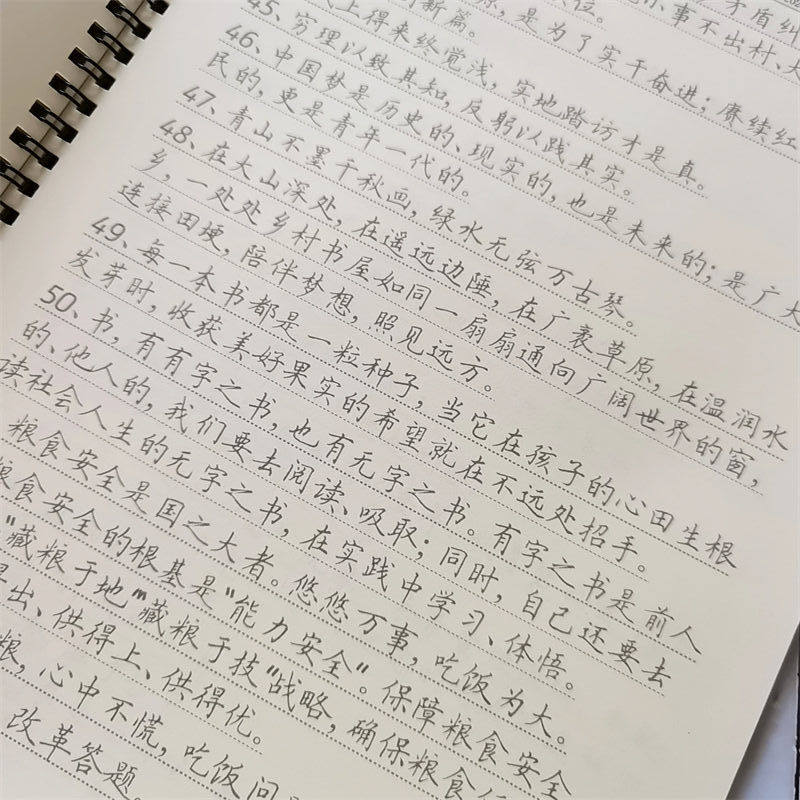 小事不出村、大
矛盾纠
新篇。
源,是为了实干奋进;赓续红
45、
上得来终觉浅,实地踏访才是真。
46、穷理以致其知,反躬以践其实。
中国梦是历史的、现实的,也是未来的;是广大
民的,更是青年一代的。
47、青山不墨千秋画,绿水无弦万古琴。
48、在大山深处,在遥远边陲,在广袤草原,在温润水
乡,一处处乡村书屋如同一扇扇通向广阔世界的窗,
连接田埂,陪伴梦想,照见远方。
49、每一本书都是一粒种子,当它在孩子的心田生根
发芽时,收获美好果实的希望就在不远处招手。
50、书,有有字之书,也有无字之书。有字之书是前人
的、他人的,我们要去阅读、吸取;同时,自己还要去
读社会人生的无字之书,在实践中学习、体悟。
粮食安全是国之大者。悠悠万事,吃饭为大。
粮食安全的根基是"能力安全"。保障粮食安全
"藏粮于地""藏粮于技"战略,确保粮食
出、供得上、供得优。
粮,心中不慌,吃饭问
改革答题。